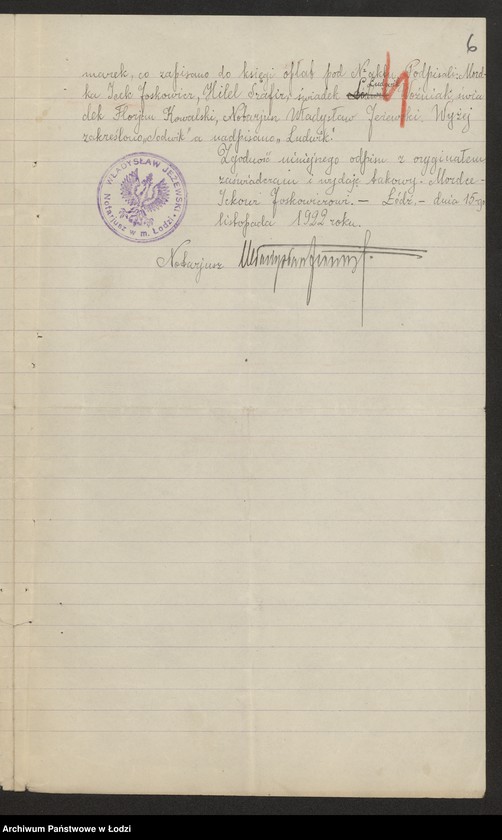 6
marek, co zapisano do księgi opłat pod Nr aktu. Podpisali: Mord-
ka Icek Joskowicz, Hilel Szafir, świadek Ludwik Woźniak, świa-
dek Florjan Kowalski, Notarjusz Władysław Jeżewski. Wyżej
zakreślono „ a nadpisano „Ludwik".
Zgodność niniejszego odpisu z oryginałem
zaświadczam i wydaję takowy Mordce-
Ickowi Joskowiczowi. — Łódź, — dnia 15-go
listopada 1922 roku.
WŁADYSŁAW JEŻEWSKI
Notarjusz w m. Łodzi
Notarjusz Władysław Jeżewski
Archiwum Państwowe w Łodzi